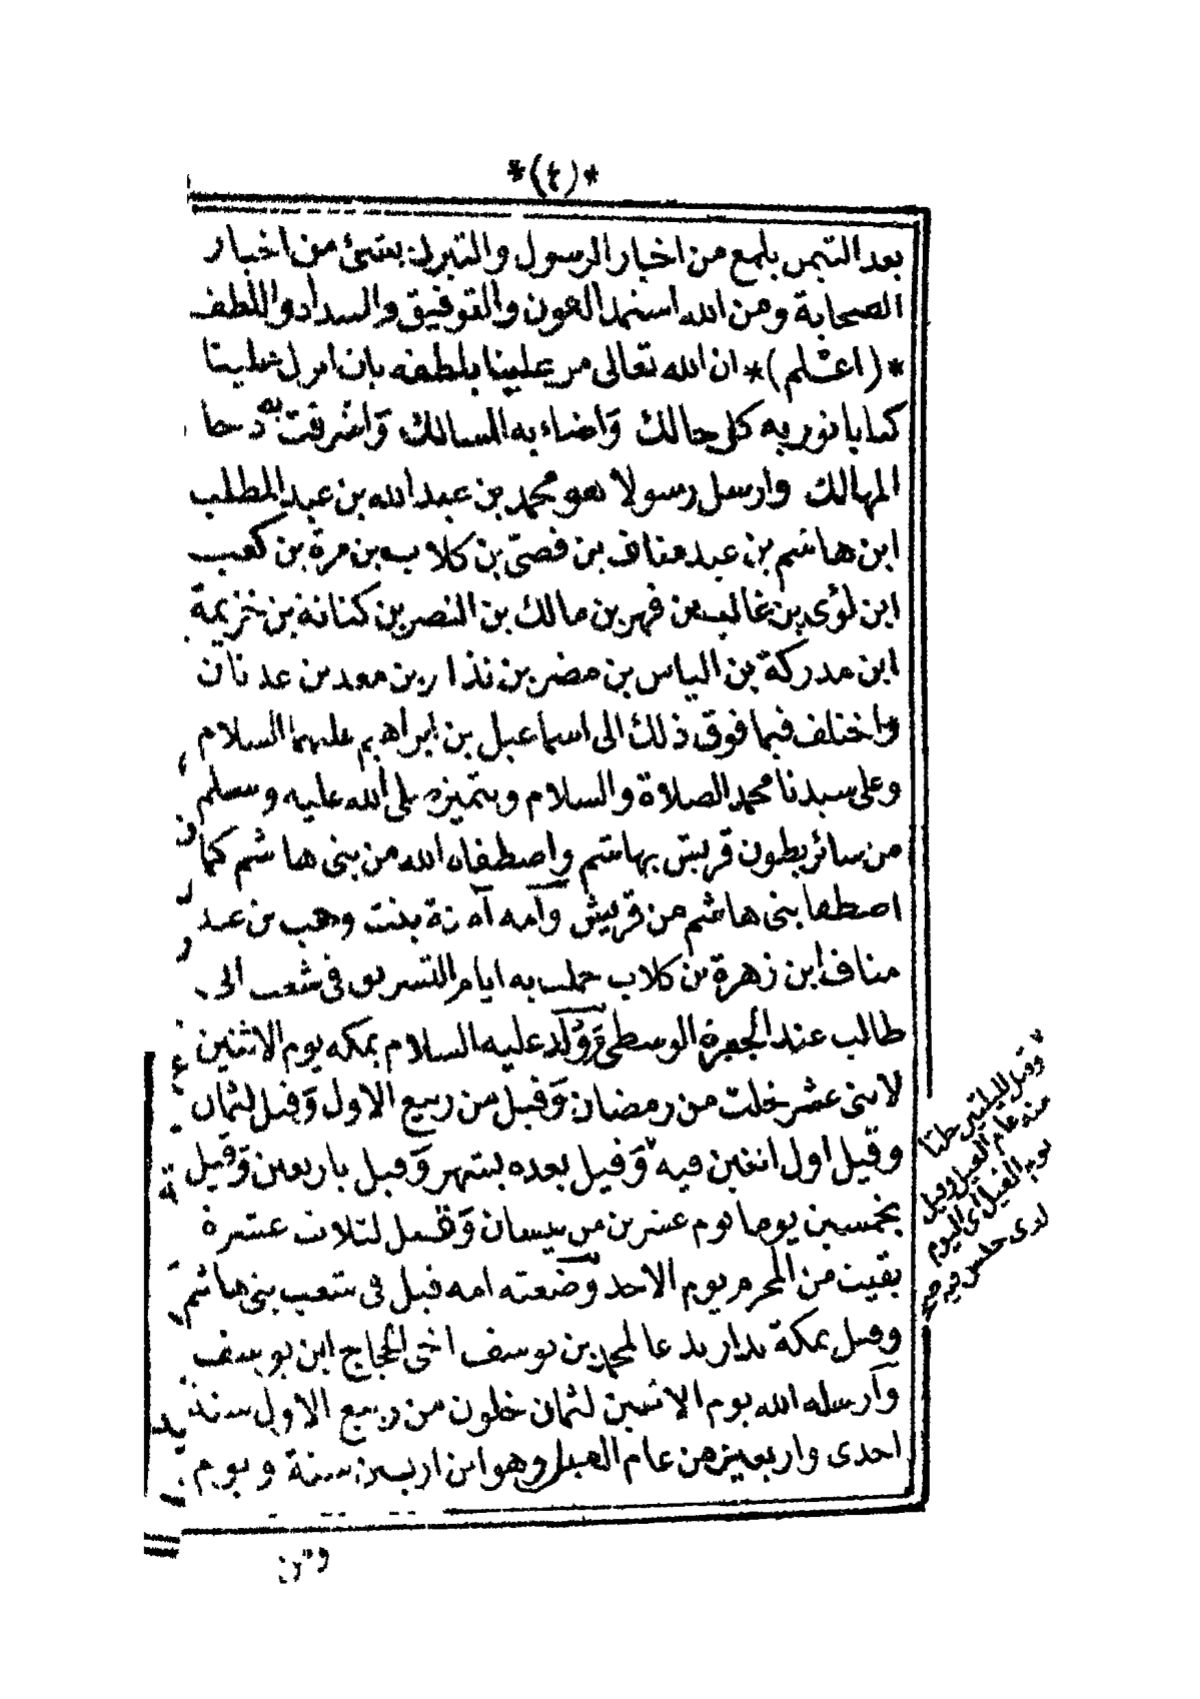 *(٤)*
بعد التيمن بلمع من اخبار الرسول والتبرك بشئ من اخبار
الصحابة ومن الله استمد العون والتوفيق والسداد واللطف
*(اعلم)* ان الله تعالى من علينا بلطفه بان انزل علينا
كتابا نور به كل حالك وَاضاء به المسالك وَاشرقت به دجا
المهالك وارسل رسولا هو محمد بن عبد الله بن عبد المطلب
ابن هاشم بن عبد مناف بن قصىّ بن كلاب بن مرة بن كعب
ابن لؤى بن غالب بن فهر بن مالك بن النضر بن كنانة بن خزيمة
ابن مدركة بن الياس بن مضر بن نذار بن معد بن عدنان
واختلف فيما فوق ذلك الى اسماعيل بن ابراهيم عليهما السلام
وعلى سيدنا محمد الصلاة والسلام ويتميز صلى الله عليه وسلم
من سائر بطون قريش بهاشم واصطفاه الله من بنى هاشم كما
اصطفا بنى هاشم من قريش وآمه آمنة بنت وهب بن عبد
مناف ابن زهرة بن كلاب حملت به ايام التشريق فى شعب ابى
طالب عند الجمرة الوسطى وَوُلِد عليه السلام بمكه يوم الاثنين
لاثنى عشر خلت من رمضان وَقيل من ربيع الاول وَقيل لثمان
وقيل اول اثنين فيه وَقيل بعده بشهر وَقيل باربعين وَقيل
بخمسين يوما يوم عشرين من نيسان وَقيل لثلاث عشرة
بقيت من المحرم يوم الاحد وَضعته امه قيل فى شعب بنى هاشم
وقيل بمكة بدار تدعا لمحمد بن يوسف اخى الحجاج ابن يوسف
وآرسله الله يوم الاثنين لثمان خلون من ربيع الاول سنة
احدى واربعين من عام الفيل وهو ابن اربعين سنة ويوم
وقيل لليلتين خلتا
منه عام الفيل وقيل
يوم الفيل اى اليوم
الذى حبس فيه